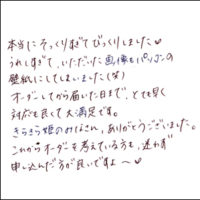 本当にそっくりすぎてびっくりしました♥
うれしすぎて、いただいた画像もパソコンの
壁紙にしてしまいました(笑)
オーダーしてから届いた日まで、とても早く
対応も良くて大満足です。
きらきら姫のみなさん、ありがとうございました。
これからオーダーも考えている方も、迷わず
申し込んだ方が良いですよ〜♥